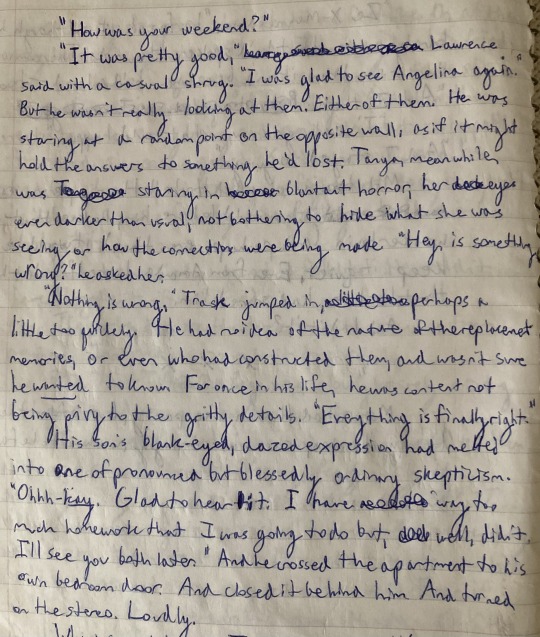 "How was your weekend?"
"It was pretty good," Lawrence
said with a casual shrug. "I was glad to see Angelina again."
But he wasn't really looking at them. Either of them. He was
staring at a random point on the opposite wall, as if it might
hold the answers to something he'd lost. Tanya, meanwhile,
was staring in blantant horror, her eyes
even darker than usual, not bothering to hide what she was
seeing or how the connections were being made "Hey, is something
wrong?" he asked her.
"Nothing is wrong." Trask jumped in, perhaps a
little too quickly. He had no idea of the nature of the replacement
memories, or even who had constructed them, and wasn't sure
he wanted to know. For once in his life, he was content not
being pivy to the gritty details. "Everything is finally right."
His son's blank-eyed, dazed expression had melted
into one of pronounced but blessedly ordinary skepticism.
"Ohhh-kay. Glad to hear it. I have way too
much homework that I was going to do but, well, didn't.
I'll see you both later." And he crossed the apartment to his
own bedroom door. And closed it behind him And turned
on the stereo. Loudly.